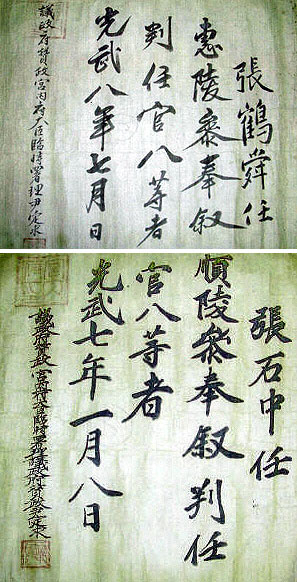 張鶴舜任
惠陵叅奉叙
判任官八等者
光武八年七月 日
議政府贊政宮內府大臣臨時署理尹定求
張石中任
順陵叅奉叙判任
官八等者
光武七年一月八日